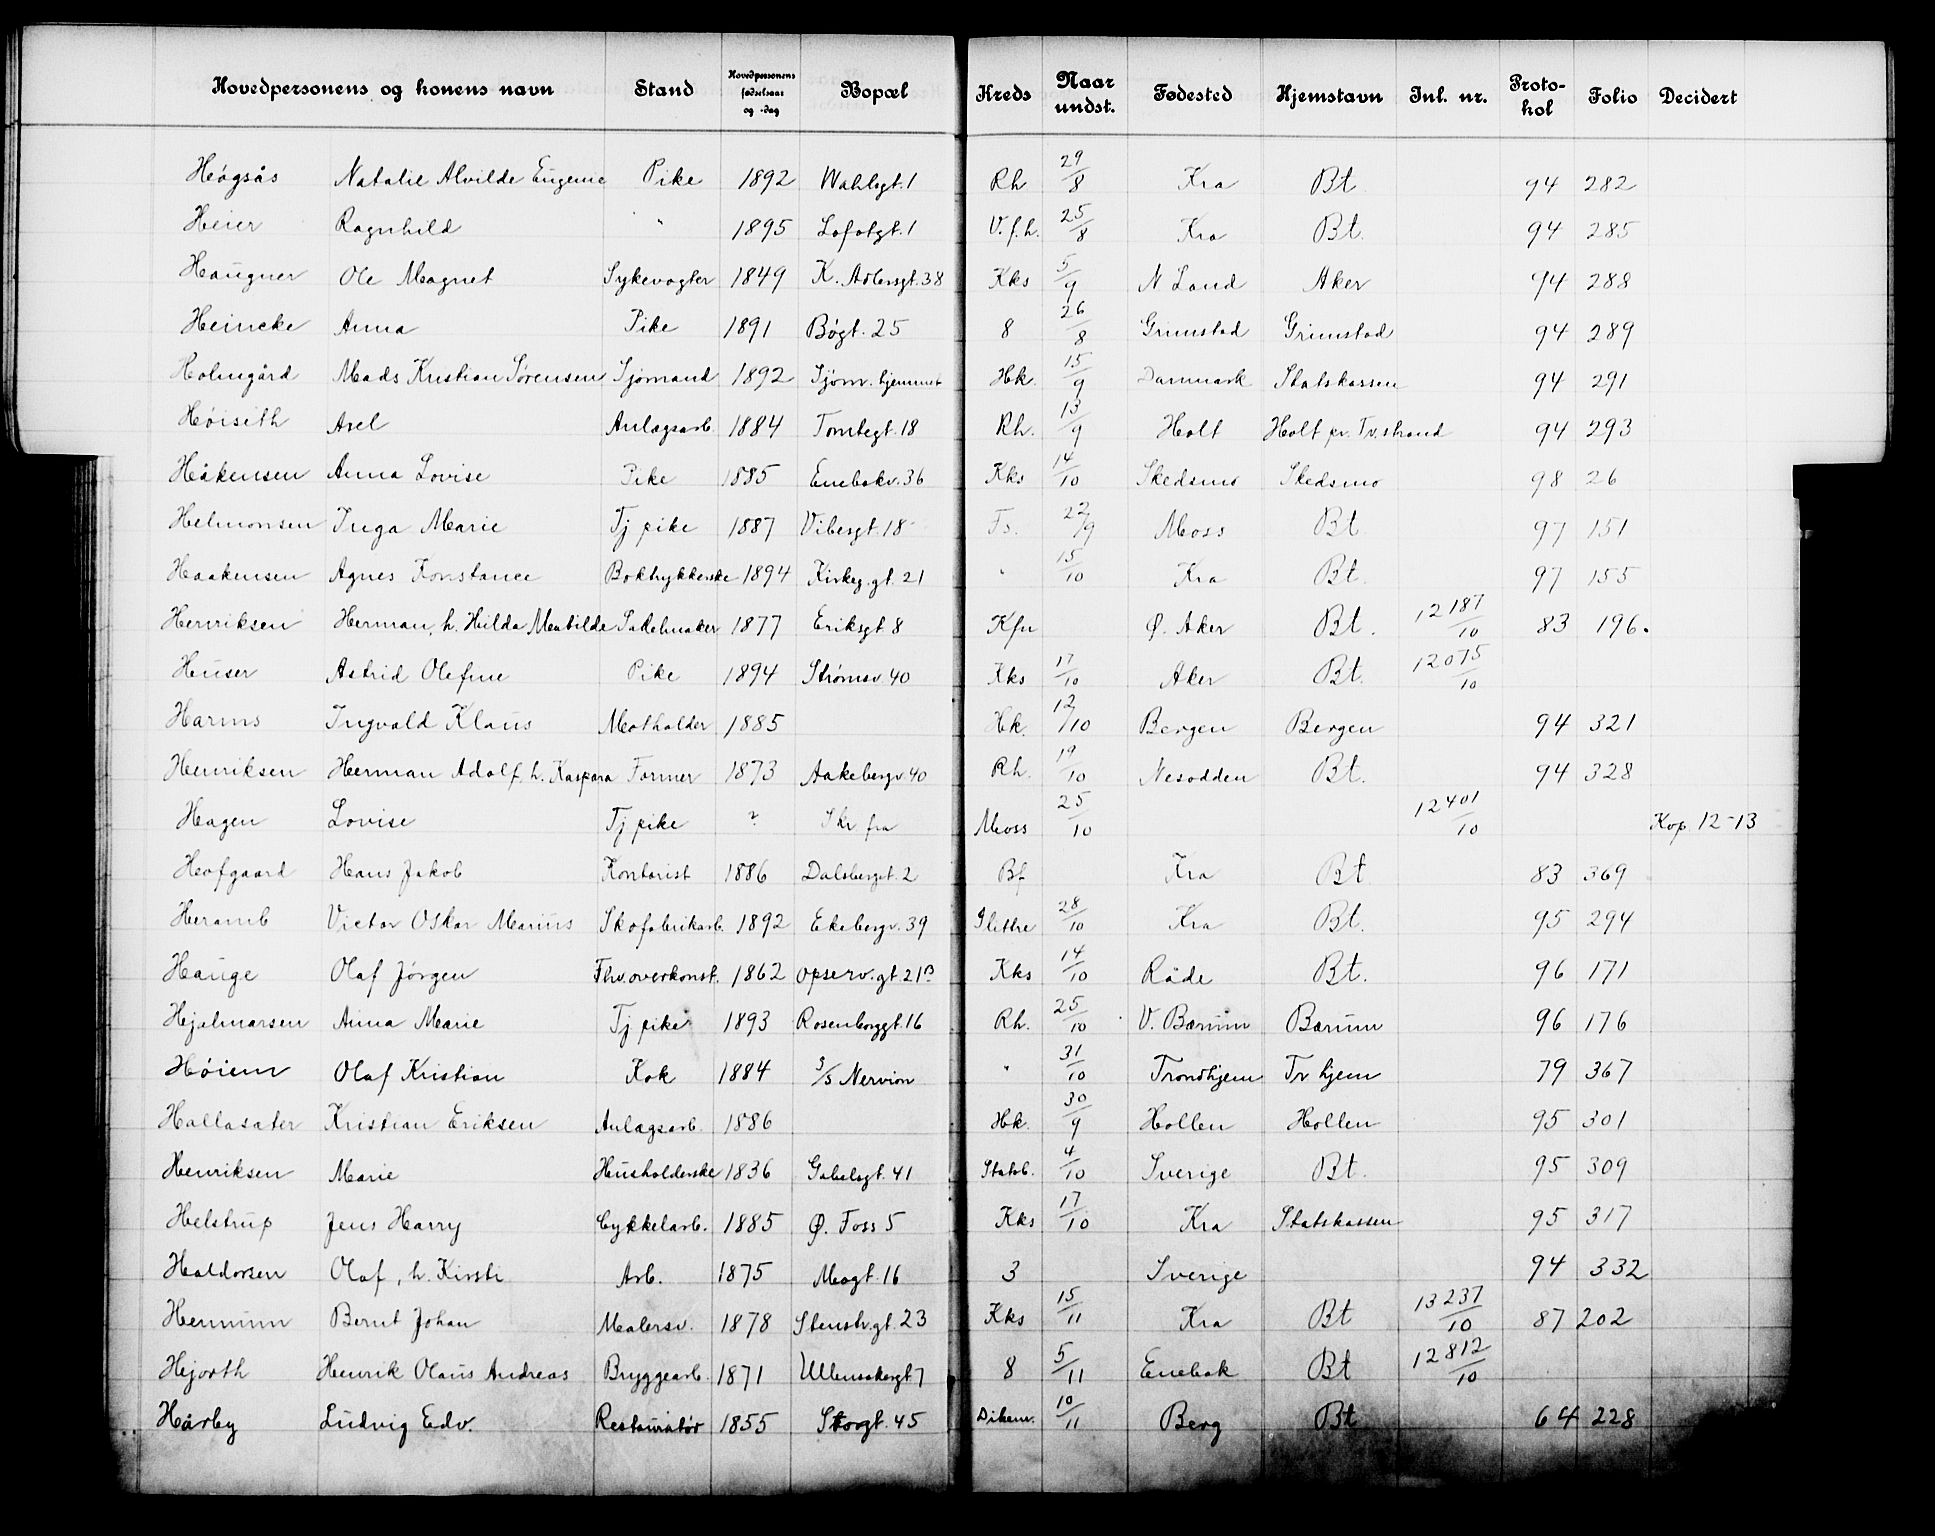 Hovedpersonens og konens navn Stand Hovedpersonens fødselsaar og -dag Bopæl Kreds Naar undst. Fødested Hjemstavn Inl. nr. Protokol Folio Decidert
Høgsås Natalie Alvilde Eugenie Pike 1892 Wahlsgt. 1 Rh 29/8 Kra Bt 94 282
Heier Ragnhild " 1895 Lofotgt. 1 V.f.h. 25/8 Kra Bt. 94 285
Haugner Ole Magnet Sykevogter 1849 K. Adlersgt. 38 Kks 5/9 N Land Aker 94 288
Heincke Anna Pike 1891 Bøgt. 25 8 26/8 Grimstad Grimstad 94 289
Holmgård Mads Kristian Sørensen Sjømand 1892 Sjøm. hjemmet Hk. 15/9 Danmark Statskassen 94 291
Høiseth Axel Anlagsarb. 1884 Tomtegt. 18 Rh. 13/9 Holt Holt pr. Tv.strand 94 293
Håkensen Anna Lovise Pike 1885 Enebakv. 36 Kks 14/10 Skedsmo Skedsmo 98 26
Helmonsen Inga Marie Tj pike 1887 Vibesgt. 18 Fs. 22/9 Moss Bt 97 151
Haakensen Agnes Konstance Boktrykkerske 1894 Kirkeg.gt. 21 " 15/10 Kra Bt. 97 155
Henriksen Herman, h. Hilda Matilde Sadelmaker 1877 Eriksgt. 8 Kfu Ø. Aker Bt. 12187/10 83 196.
Huser Astrid Olefine Pike 1894 Strømsv. 40 Kks 17/10 Aker Bt. 12075/10
Harms Ingvald Klaus Mathalder 1885 Hk. 12/10 Bergen Bergen 94 321
Henriksen Herman Adolf, h. Kaspara Former 1873 Aakebergv. 40 Rh. 19/10 Nesodden Bt. 94 328
Hagen Lovise Tj pike ? Skr fra Moss 25/10 12401/10 Kop. 12-13
Hofgaard Hans Jakob Kontorist 1886 Dalsbergst. 2 Bf Kra Bt 83 369
Heramb Victor Oskar Marius Skofabrikarb. 1892 Ekebergv. 39 Slettre 28/10 Kra Bt. 95 294
Hauge Olaf Jørgen Fhv. overkonst. 1862 Opserv.gt. 21B Kks 14/10 Råde Bt. 96 171
Hjalmarsen Anna Marie Tj pike 1893 Rosenborggt. 16 Rh. 25/10 V. Bærum Bærum 96 176
Høiem Olaf Kristian Kok 1884 S/S Nervion " 31/10 Trondhjem Tr hjem 79 367
Hallasæter Kristian Eriksen Anlagsarb. 1886 Hk. 30/9 Hollen Hollen 95 301
Henriksen Marie Husholderske 1836 Gabelsgt. 41 Statsb. 4/10 Sverige Bt. 95 309
Helstrup Jens Harry Cykkelarb. 1885 Ø. Foss 5 Kks 17/10 Kra Statskassen 95 317
Haldorsen Olaf, h. Kirsti Arb. 1875 Mogt. 16 3 Sverige 94 332
Hennum Bernt Johan Malersv. 1878 Stenstr.gt. 23 Kks 15/11 Kra Bt 13237/10 87 202
Hjorth Henrik Olaus Andreas Bryggearb. 1871 Ullensakergt 7 8 5/11 Enebak Bt 12812/10
Hårby Ludvig Edv. Restauratør 1855 Storgt. 45 Dikem. 10/11 Berg Bt 64 228